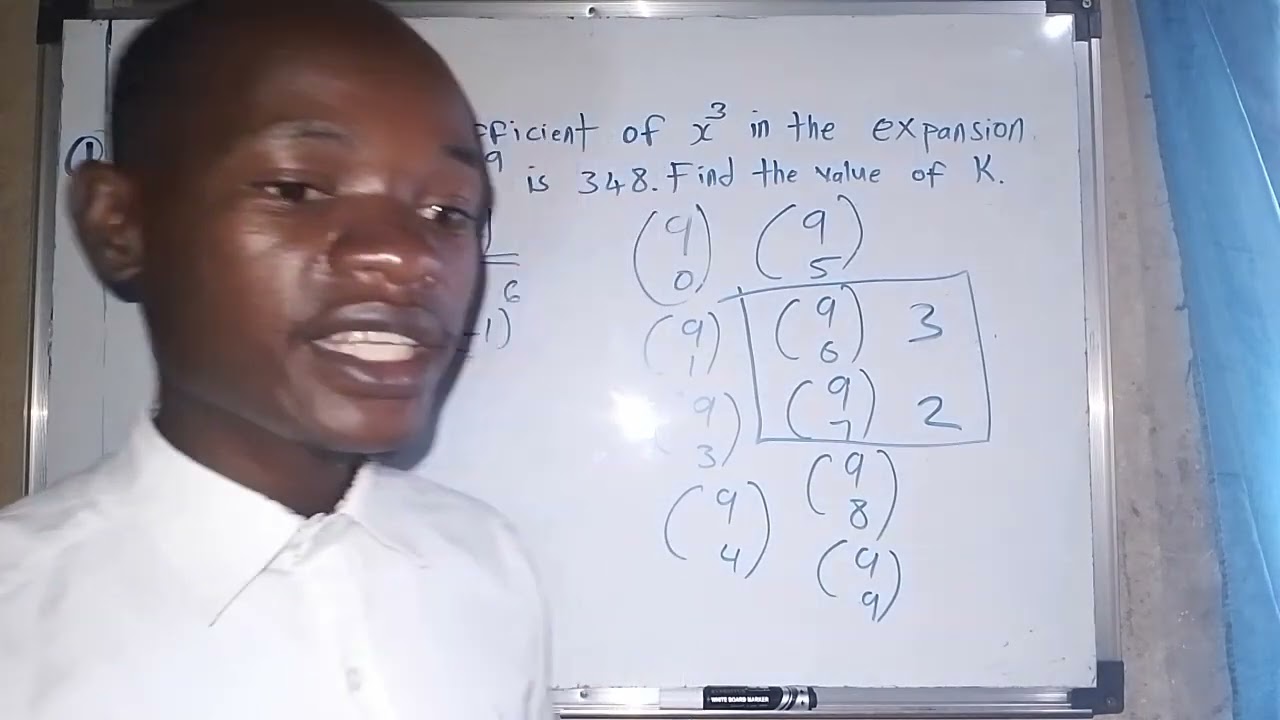 ①
fficient of x³ in the expansion.
9 is 348. Find the value of K.
(9 0) (9 5)
6
-1)
(9 1) (9 6) 3
(9 3) (9 7) 2
(9 4) (9 8)
(9 9)
WHITE BOARD MARKER